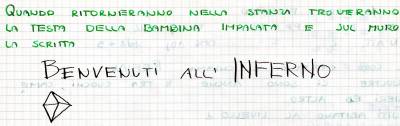 QUANDO RITORNERANNO NELLA STANZA TROVERANNO
LA TESTA DELLA BAMBINA IMPALATA E SUL MURO
LA SCRITTA
BENVENUTI ALL' INFERNO